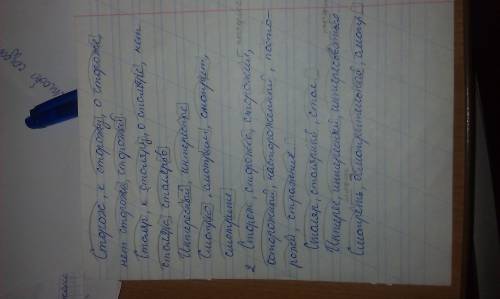 Сторож, к сторожу, о стороже,
нет сторожа, сторожа
Столяр, к столяру, о столяре, нет
столяра, столяров
Интересный, интересные
Смотрел, смотрит, смотрят,
смотрите
2 Сторож, сторожка, сторожил,
осторожный, настороженный, посто-
ронел, стражение
Столяр, столярный стол
Интерес, интересный, интересоваться
Смотреть, осмотрительной, смотр